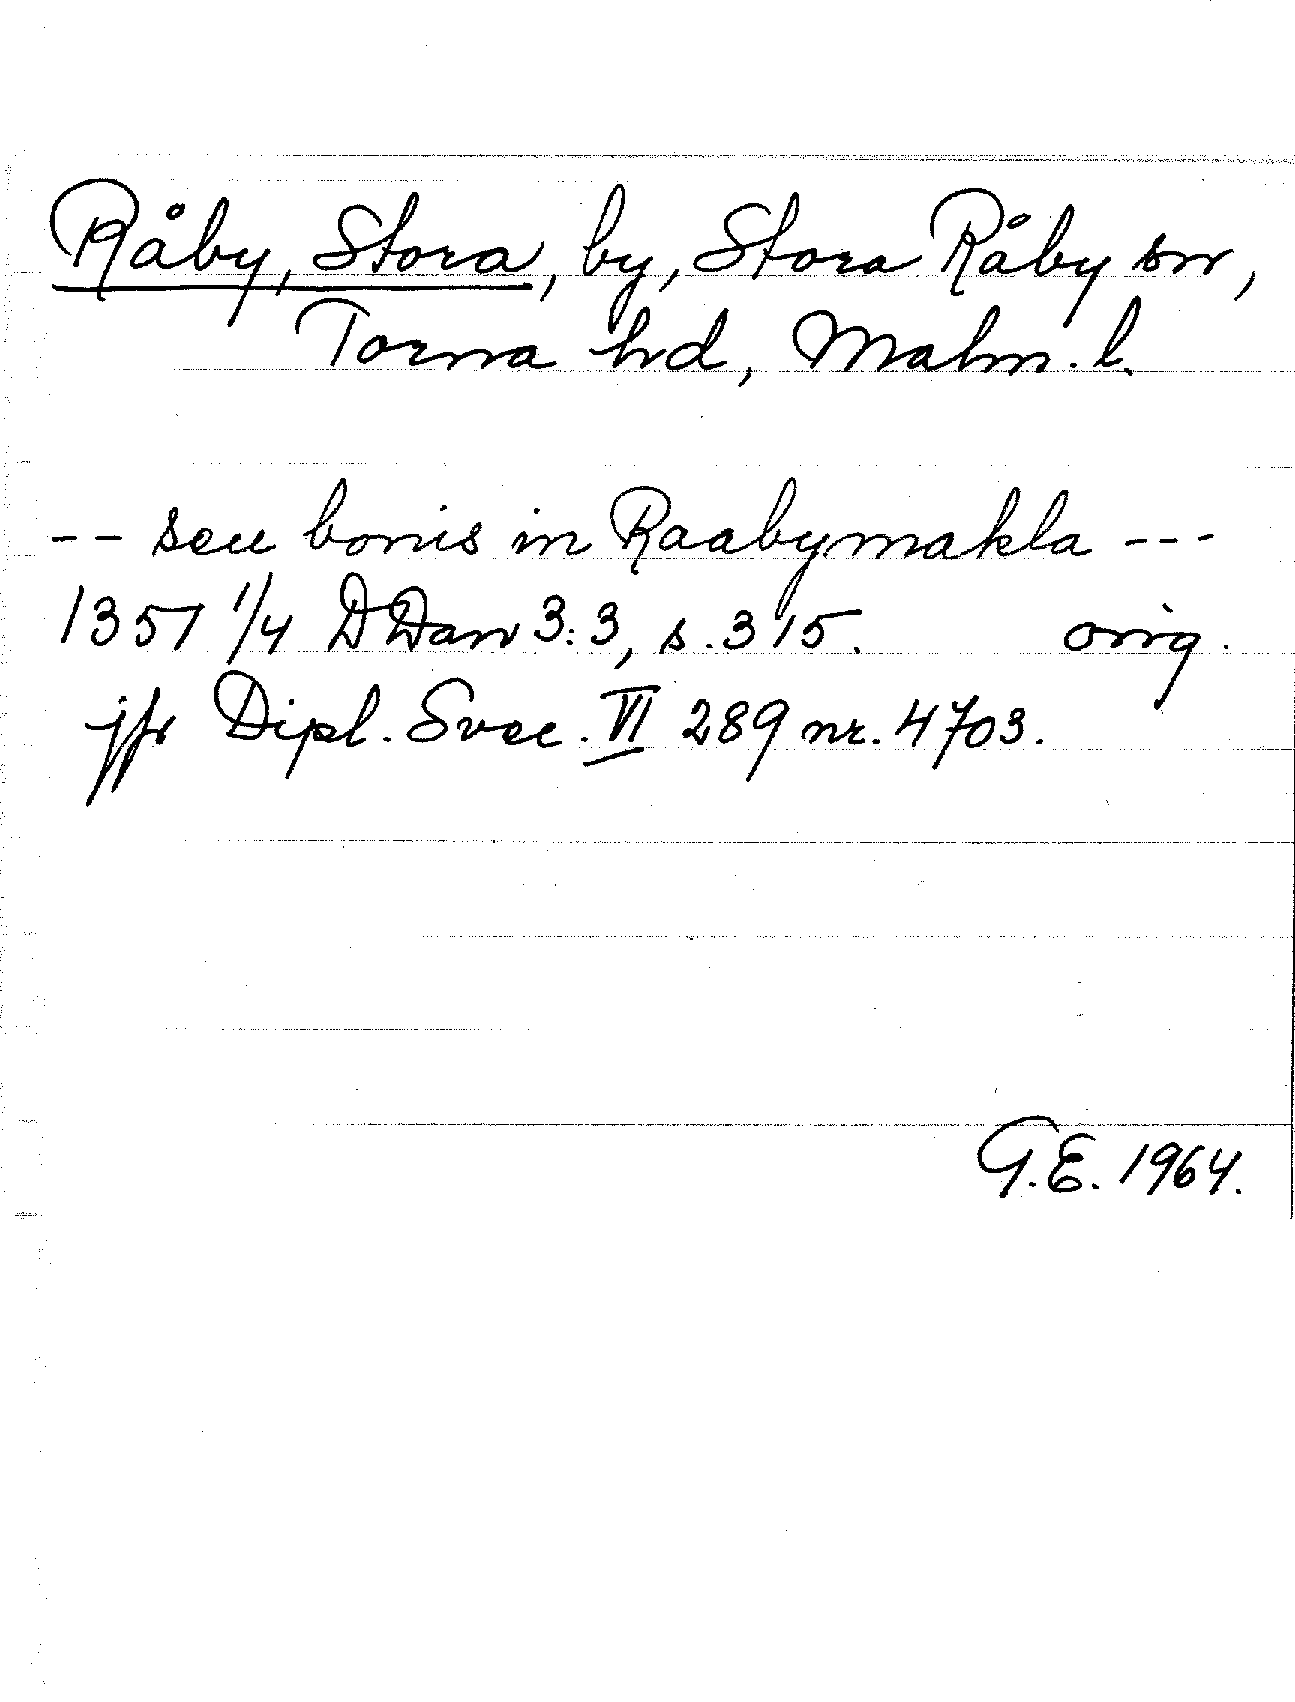 Råby, Stora, by, Stora Råby sn,
Torna hd, Malm. l.
-- seu bonis in Raabymakla ---
1351 1/4 DDan 3:3, s. 315. orig.
jfr Dipl. Svec. VI 289 nr. 4703.
G.E. 1964.